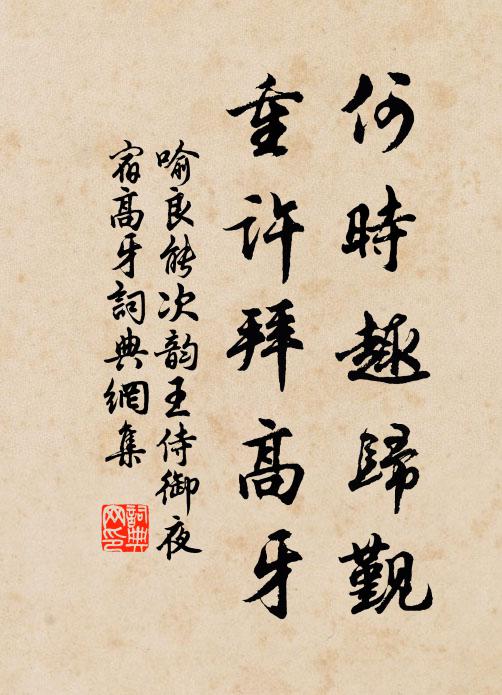 何時趣歸覲
重許拜高牙
喻良能次韵王侍御夜
宿高牙詞典網集
詞典
网印